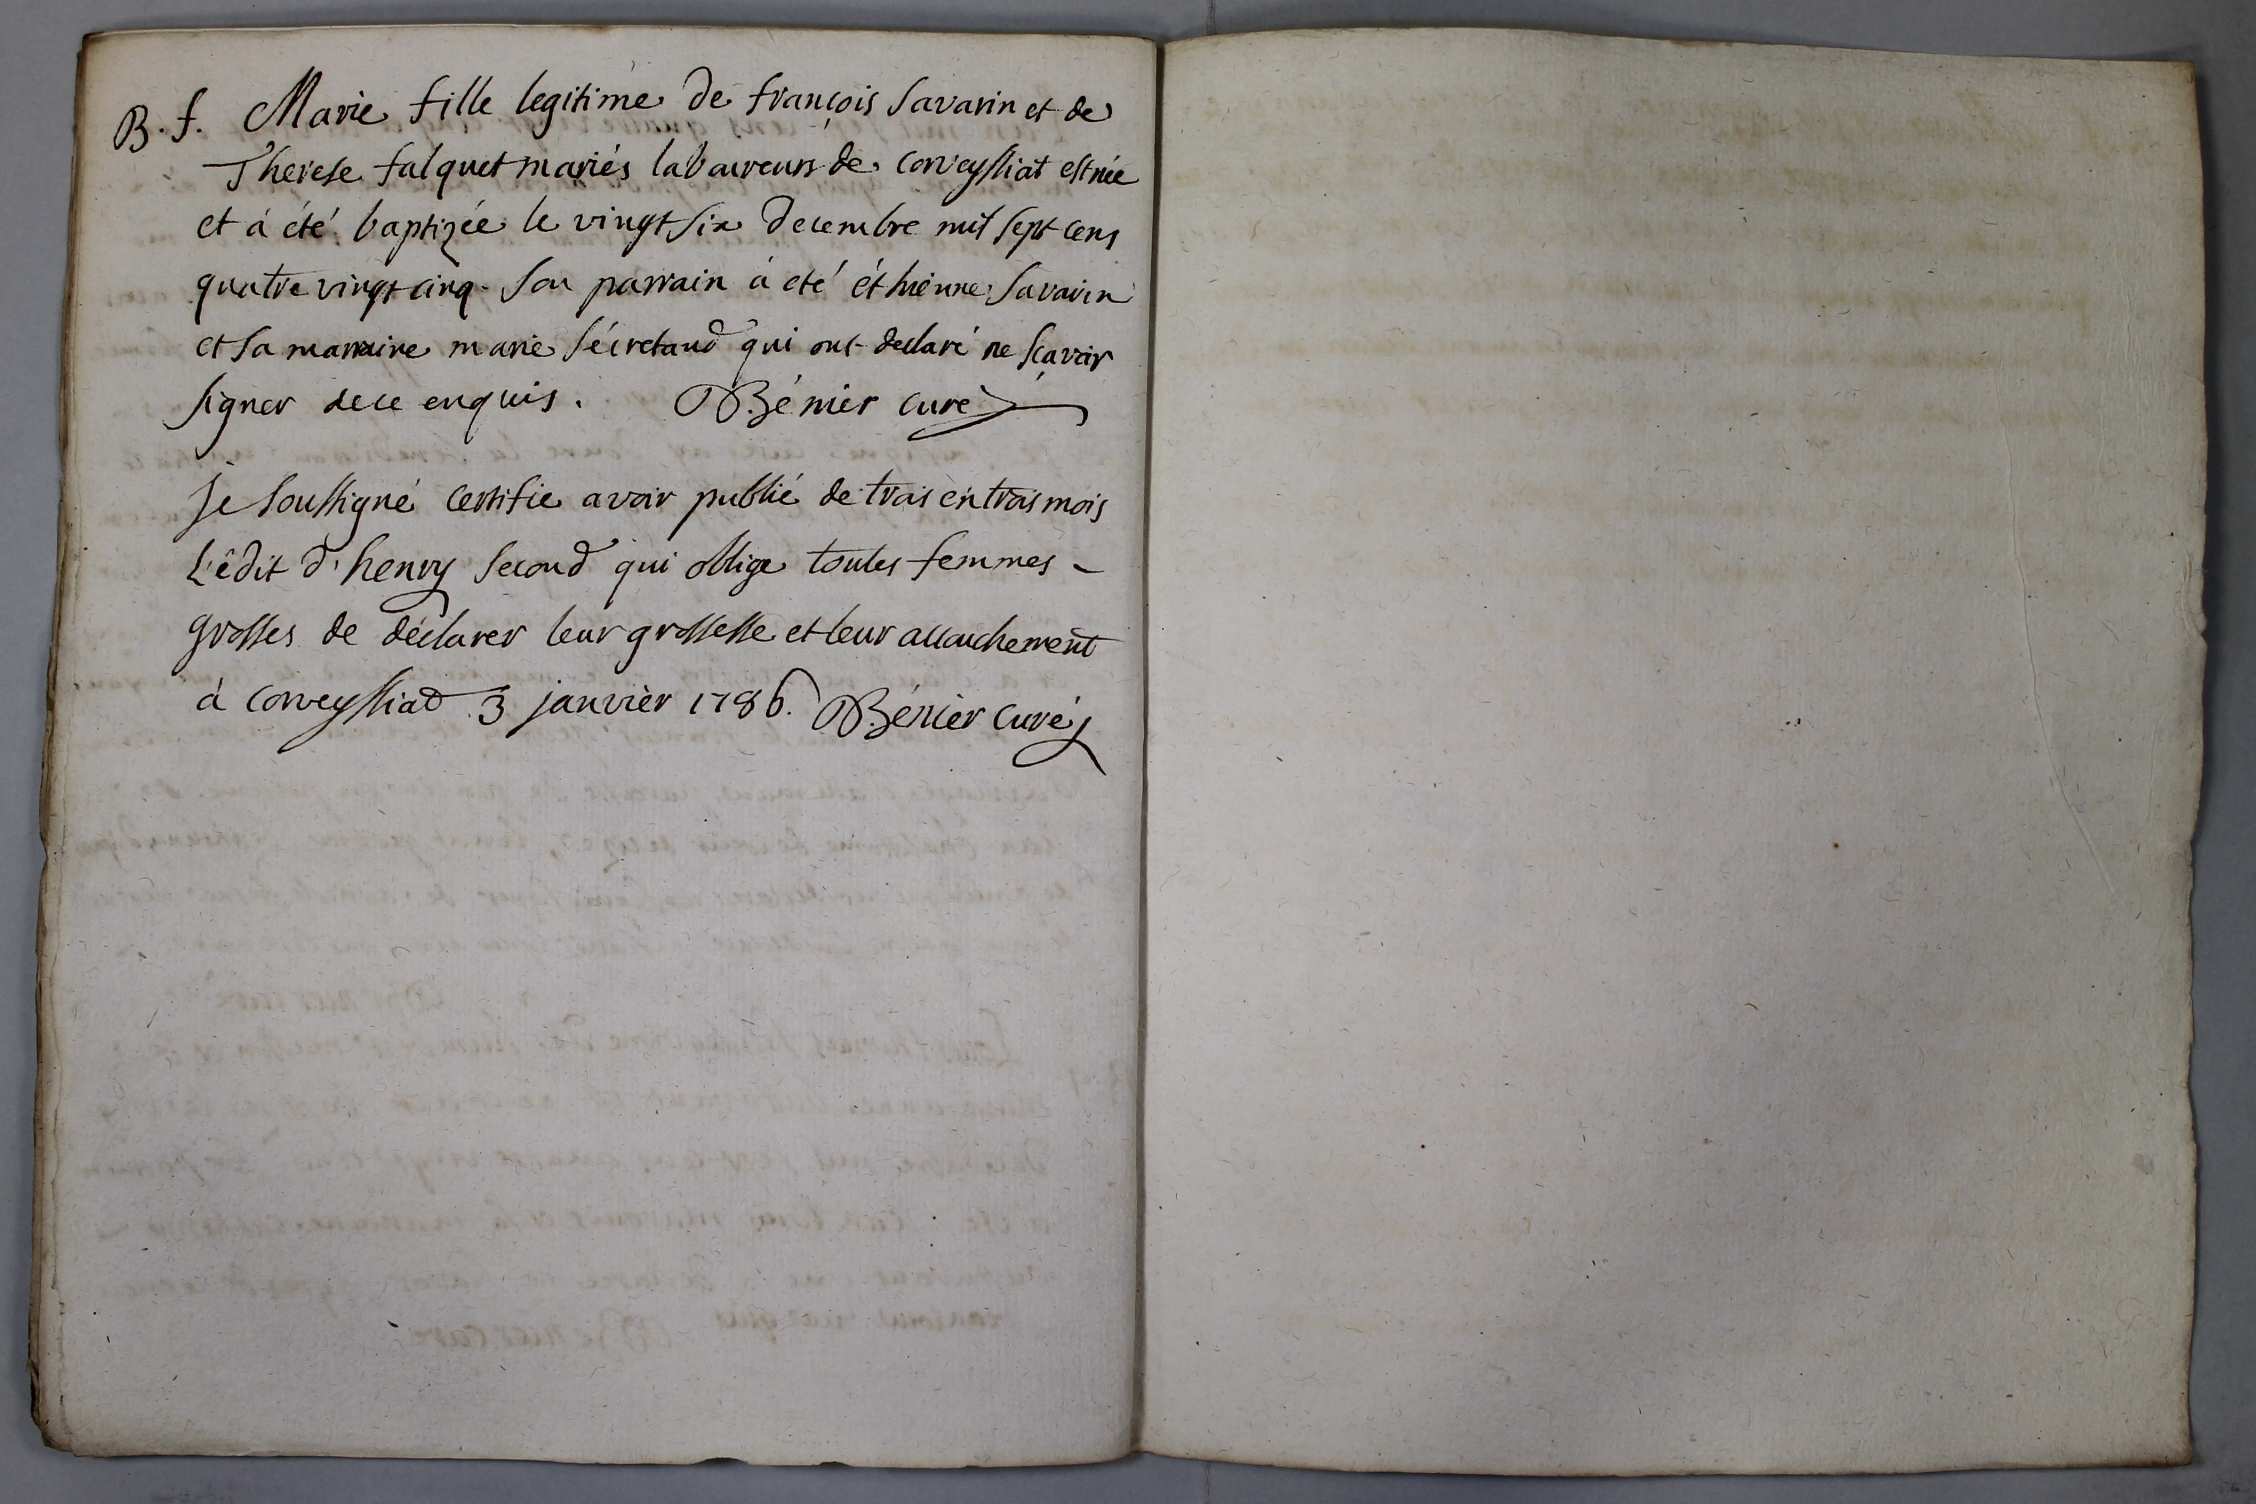 B. f. Marie fille legitime de françois Savarin et de
Therese falquet mariés laboureurs de Corveyssiat est née
et à été baptizée le vingt six decembre mil sept cens
quatre vingt cinq. Son parrain à eté éthienne Savarin
et sa marraine marie Sécretand qui ont declaré ne sçavoir
signer de ce enquis. Bénier curé
je soussigné certifie avoir publié de trois en trois mois
L'êdit d'henry second qui oblige toutes femmes
grosses de déclarer leur grossesse et leur accouchement
à Corveyssiad 3 janvier 1786. Bénier curé